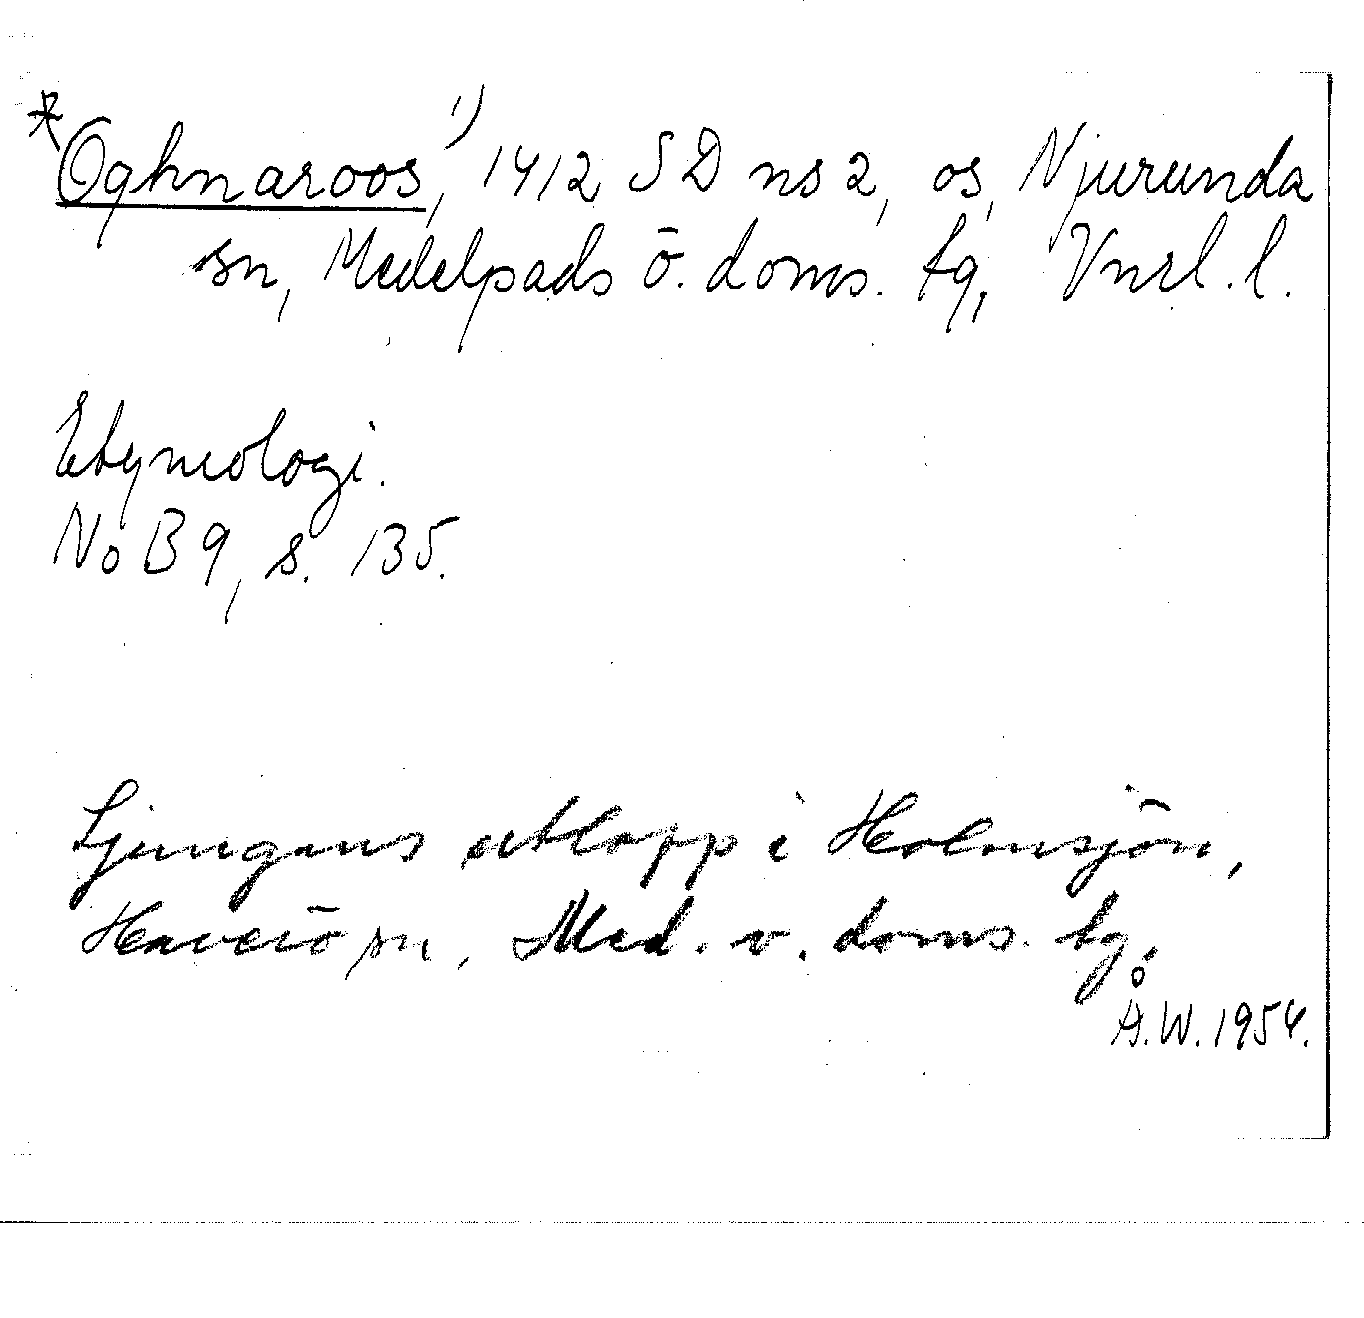 *Oghnaroos,¹⁾ 1412 SD ns 2, os, Njurunda
sn, Medelpads ö. doms. tg, Vnrl. l.
Etymologi.
NoB 9, s. 135.
Ljungans utlopp i Holmsjön,
Haverö sn, Med. v. doms. tg.
Å.W. 1954.